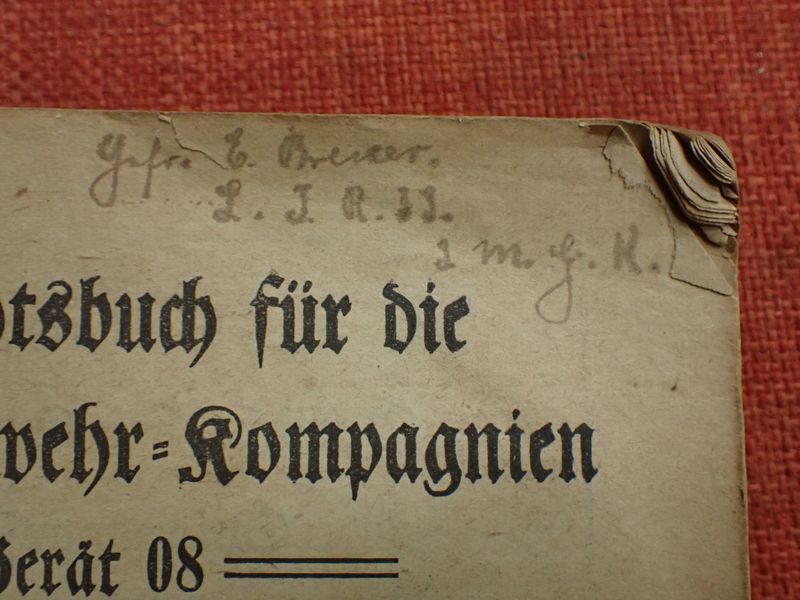 Gefr. E. Breuer.
L. I. R. 33.
2 M. G. K.
otsbuch für die
wehr=Kompagnien
Gerät 08